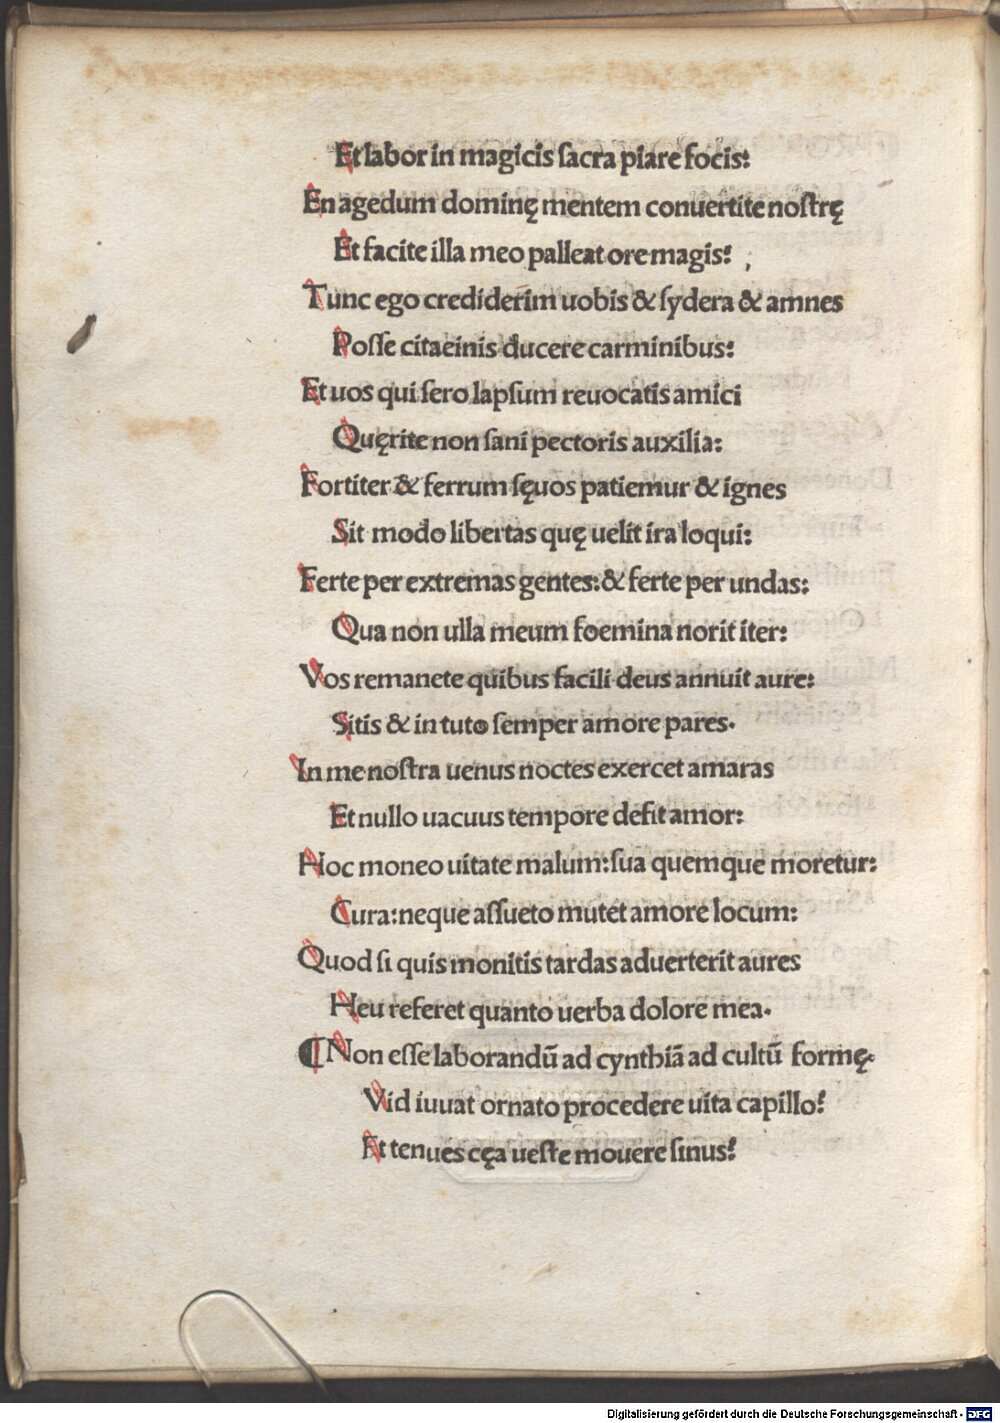 Et labor in magicis ſacra piare focis:
En agedum dominę mentem conuertite noſtrę
Et facite illa meo palleat ore magis:
Tunc ego crediderim uobis & ſydera & amnes
Poſſe citaeinis ducere carminibus:
Et uos qui ſero lapſum reuocatis amici
Quęrite non ſani pectoris auxilia:
Fortiter & ferrum ſęuos patiemur & ignes
Sit modo libertas quę uelit ira loqui:
Ferte per extremas gentes: & ferte per undas:
Qua non ulla meum foemina norit iter:
Vos remanete quibus facili deus annuit aure:
Sitis & in tuto ſemper amore pares.
In me noſtra uenus noctes exercet amaras
Et nullo uacuus tempore defit amor:
Hoc moneo uitate malum: ſua quemque moretur:
Cura: neque aſſueto mutet amore locum:
Quod ſi quis monitis tardas aduerterit aures
Heu referet quanto uerba dolore mea.
¶ Non eſſe laborandū ad cynthiā ad cultū formę.
Vid iuuat ornato procedere uita capillo?
Et tenues cęa ueſte mouere ſinus?
Digitalisierung gefördert durch die Deutsche Forschungsgemeinschaft - DFG